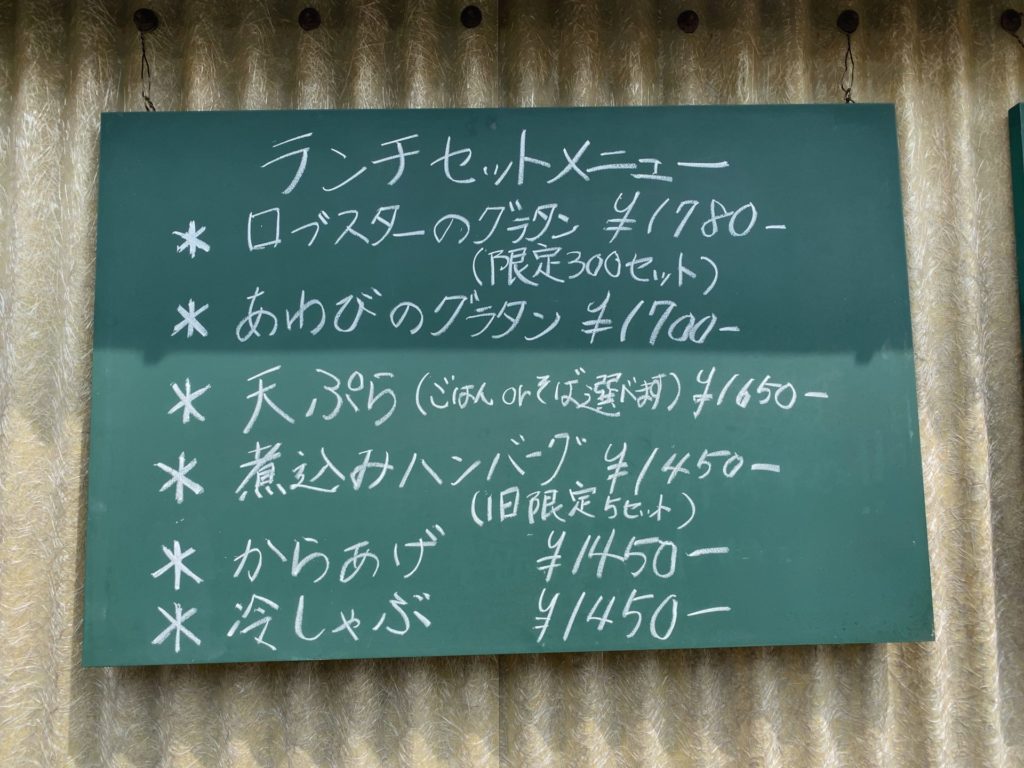 ランチセットメニュー
* ロブスターのグラタン ¥1780-
(限定300セット)
* あわびのグラタン ¥1700-
* 天ぷら(ごはんorそば選べます) ¥1650-
* 煮込みハンバーグ ¥1450-
(1日限定5セット)
* からあげ ¥1450-
* 冷しゃぶ ¥1450-